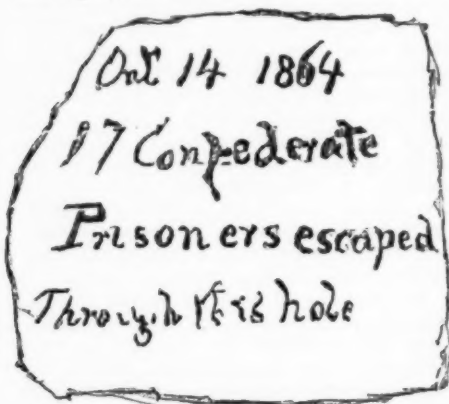 Oct 14 1864
17 Confederate
Prisoners escaped
Through this hole